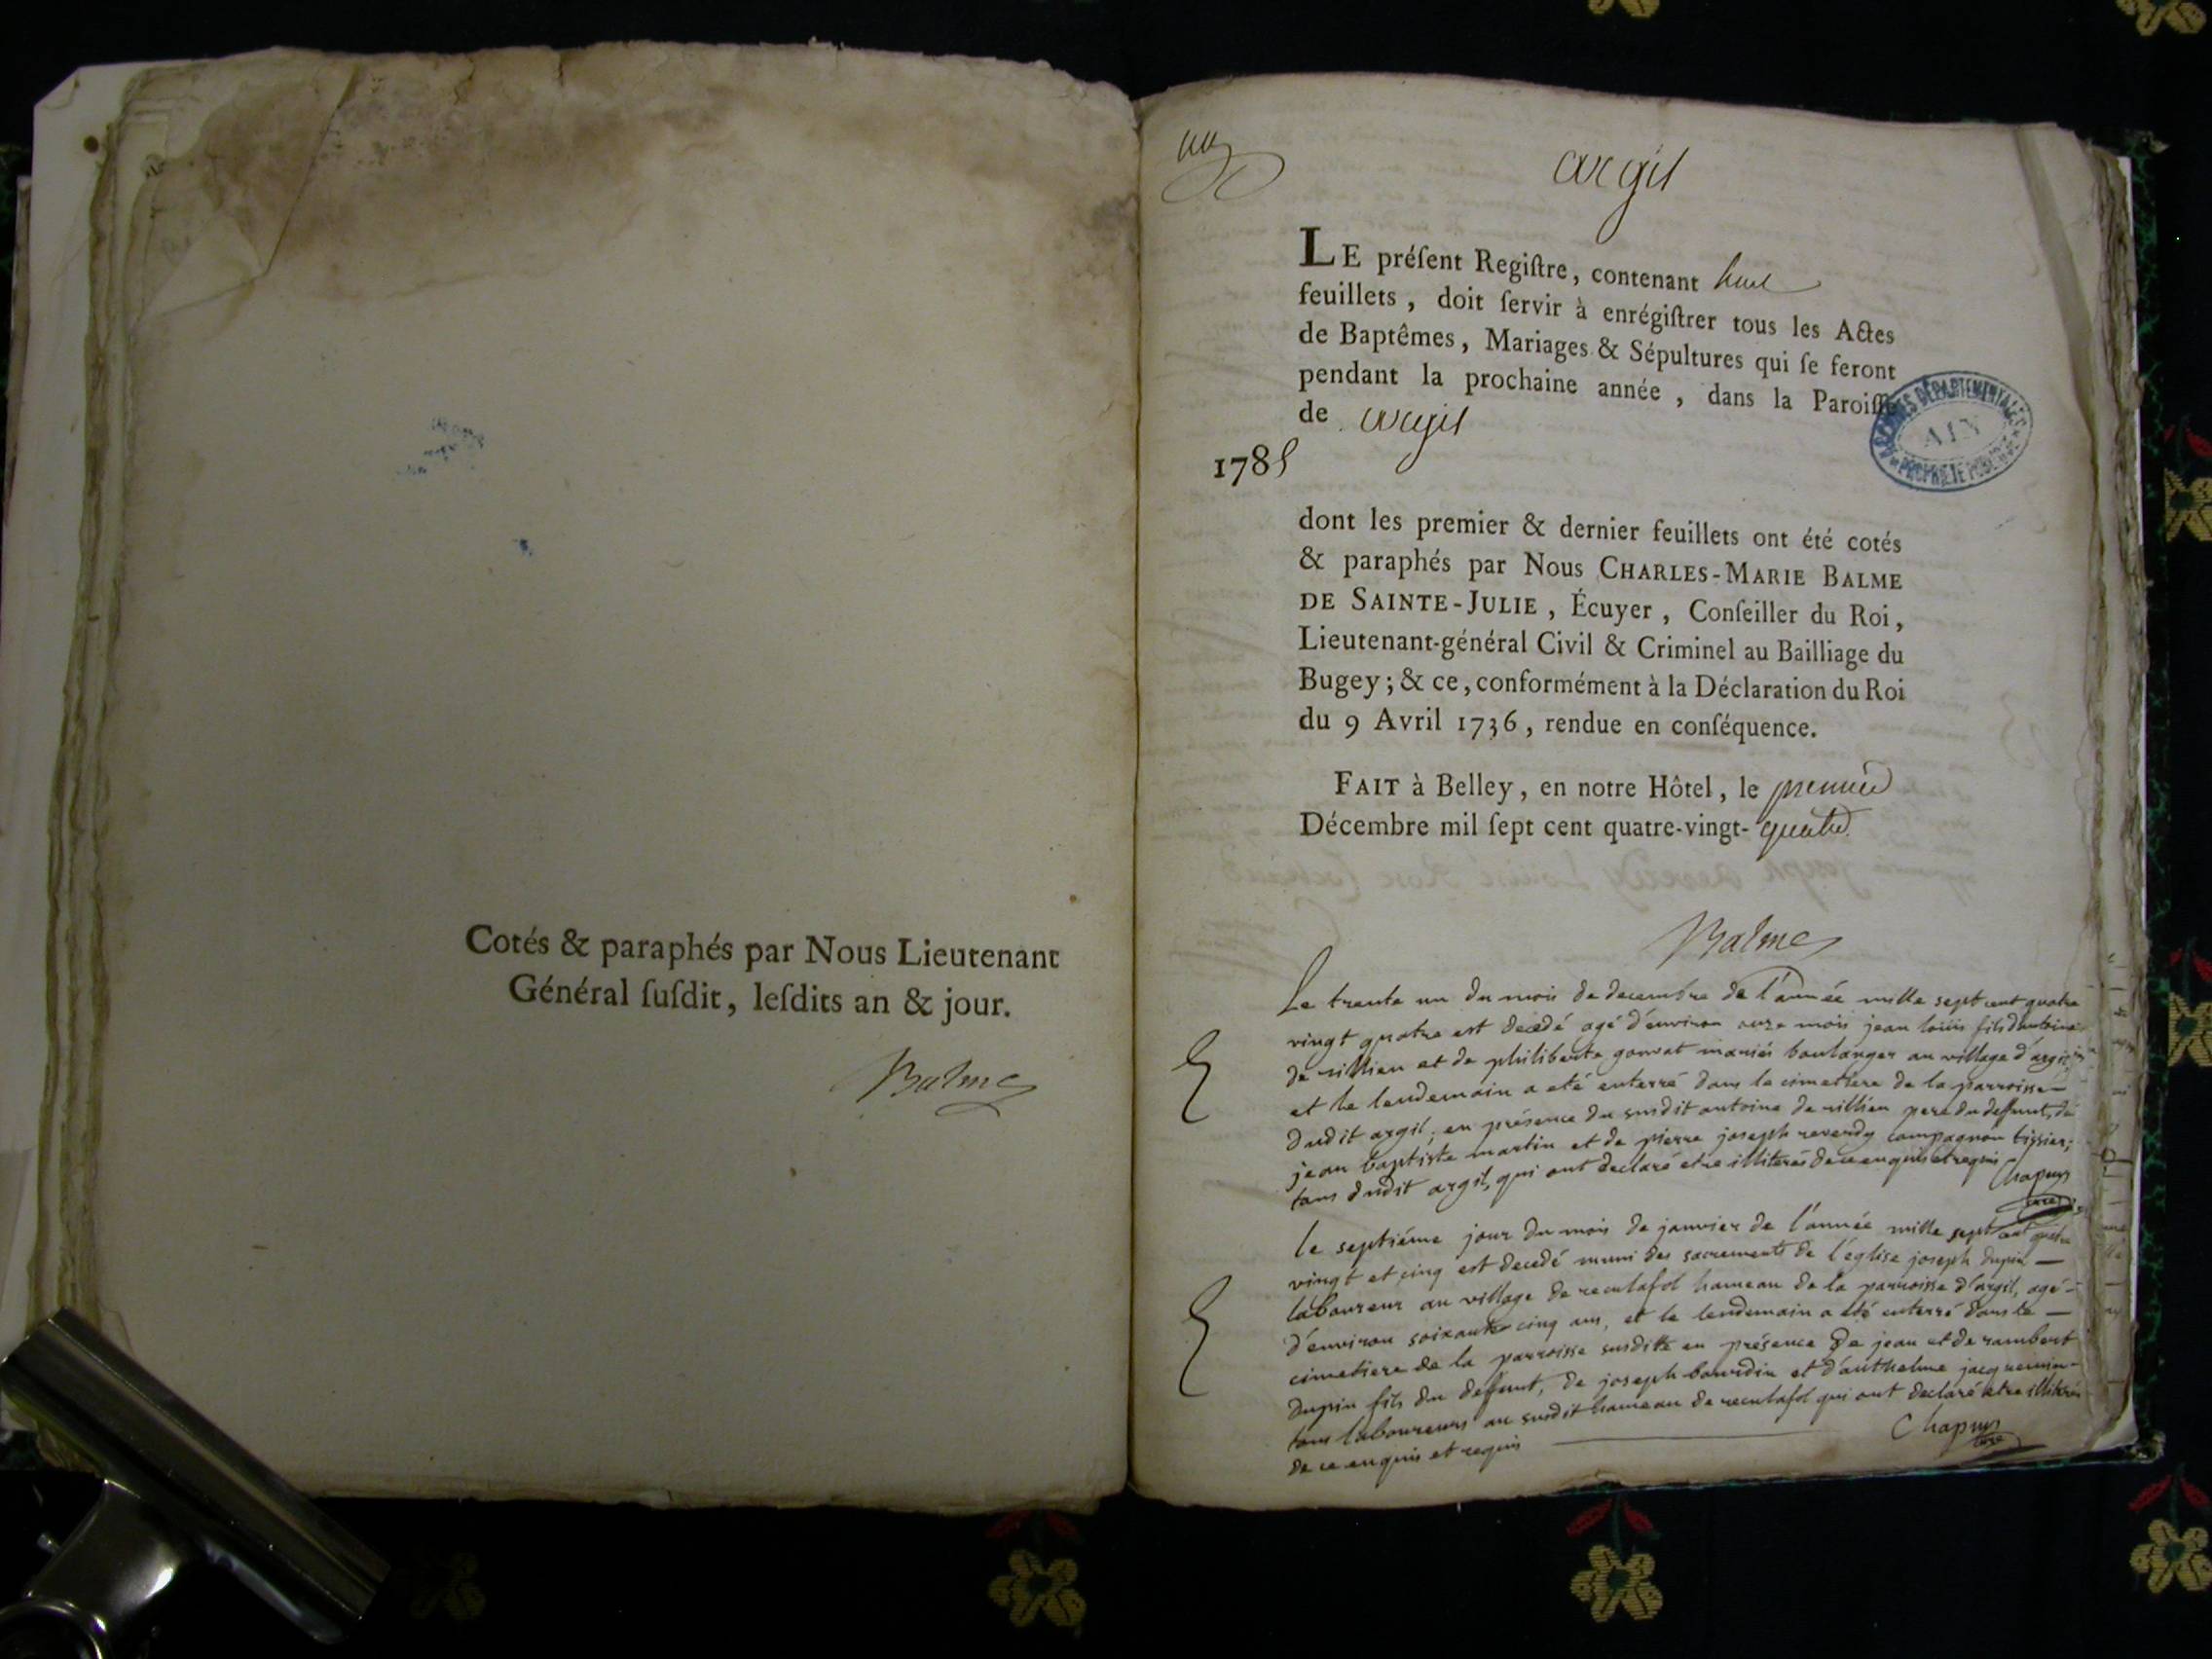 Cotés & paraphés par Nous Lieutenant
Général ſuſdit, leſdits an & jour.
Balme
argil
LE préſent Regiſtre, contenant huit
feuillets, doit ſervir à enrégiſtrer tous les Actes
de Baptêmes, Mariages & Sépultures qui ſe feront
pendant la prochaine année, dans la Paroiſſe
de argil
1785
ARCHIVES DÉPARTEMENTALES
AIN
PROPRIÉTÉ PUBLIQUE
dont les premier & dernier feuillets ont été cotés
& paraphés par Nous CHARLES-MARIE BALME
DE SAINTE-JULIE, Écuyer, Conſeiller du Roi,
Lieutenant-général Civil & Criminel au Bailliage du
Bugey; & ce, conformément à la Déclaration du Roi
du 9 Avril 1736, rendue en conſéquence.
FAIT à Belley, en notre Hôtel, le premier
Décembre mil ſept cent quatre-vingt-quatre
Balme
Le trente un du mois de decembre de l'année mille sept cent quatre
vingt quatre est decedé agé d'environ onze mois jean louis fils d'antoine
de rillieu et de philiberte gonrat mariés boulanger au village d'argil,
et le lendemain a eté enterré dans le cimetiere de la parroisse
dudit argil, en présence du susdit antoine de rillieu pere du deffunt, de
jean baptiste martin et de pierre joseph reverdy compagnon tissier,
tous dudit argil, qui ont declaré etre illiterés de ce enquis et requis Chapuy
curé
le septiéme jour du mois de janvier de l'année mille sept cent quatre
vingt et cinq est decedé muni des sacrements de l'église joseph dupin
laboureur au village de reculafol hameau de la parroisse d'argil, agé
d'environ soixante cinq ans, et le lendemain a eté enterré dans le
cimetiere de la parroisse susditte en présence de jean et de rambert
dupin fils du deffunt, de joseph bourdin et d'anthelme jacquemin
tous laboureurs au susdit hameau de reculafol qui ont declaré etre illiterés
de ce enquis et requis Chapuy
curé